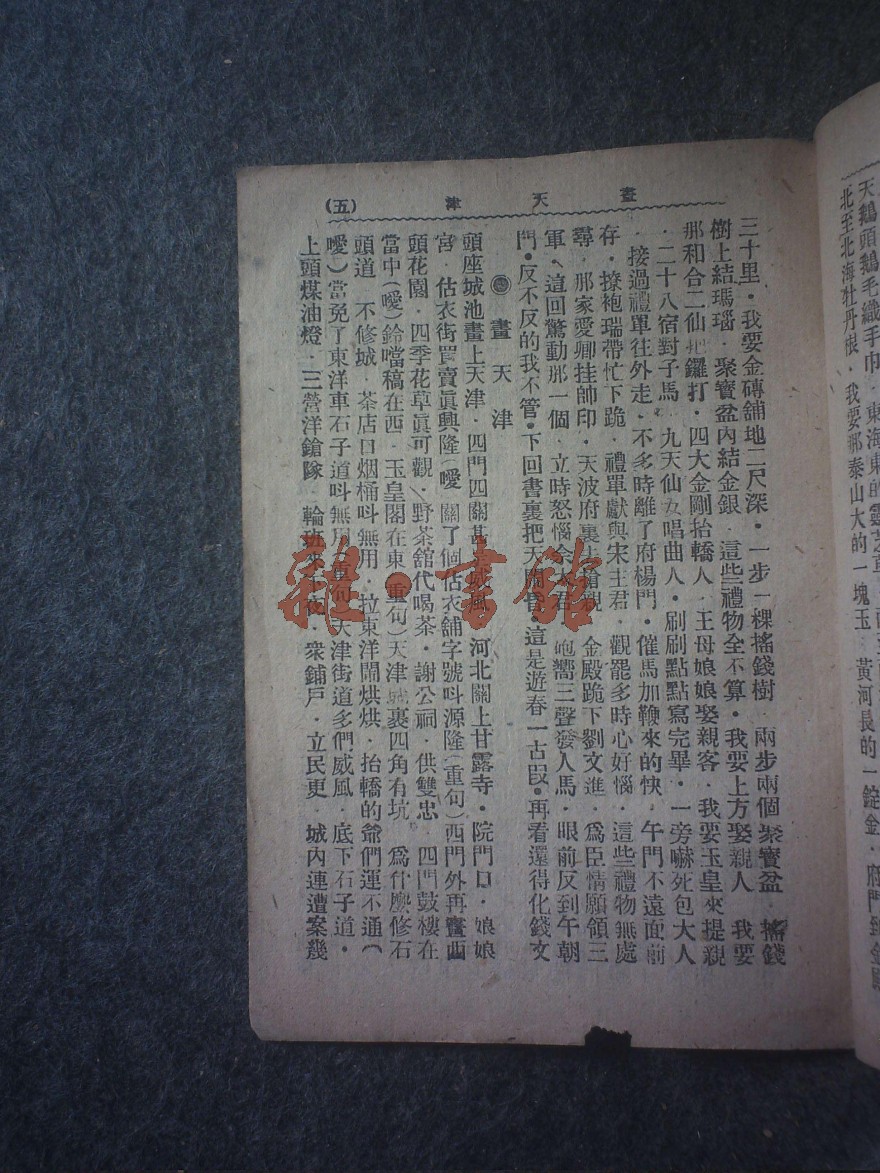 畫天津
(五)
三十里・我要金磚舖地二尺深・一步一棵搖錢樹・兩步兩個聚寶盆・搖錢
樹上結瑪瑙・聚寶盆內結金銀・這些禮物全不算・我要上方娶親人・我要
那和合二仙 鑼打・四大金剛抬轎人・王母娘娘娶親客・我要玉皇來提親
・二十八宿對子馬・九天仙女唱曲人・刷刷點點寫完畢・一旁嚇死包大人
・接過禮單往外走・不多時離了府楊門・催馬加鞭來的快・午門不遠面前
存・撩袍瑞帶忙下跪・禮單獻與宋主君・觀罷多時心好惱・這些禮物無處
尋・那家愛卿挂帥印・天波府裏 親・金殿跪下劉文進・爲臣情願領三
軍・這回驚動那一個・立時怒惱 君・砲嚮三聲發人馬・眼前反到午朝
門・反不反的我不管・下回書裏把天 ・這是遊春一古段・再看還得化錢文
畫天津
頭座城池畫上天津・四門四關甚 威風・河北關上甘露寺・院門口・娘娘
宮・估衣街買賣眞興隆(噯 關了個估衣舖字號呌源隆(重句)西門外再賣
頭花園・四季花草眞可觀・野茶舘代喝茶・謝公祠・供雙忠・四門鼓樓在
當中(噯)鈴噹稿在西・玉皇閣在東(重句)天津城裏四角有坑・爲什麽修石
頭道・不修城・茶店口烟桶呌無用・拉東洋鬧烘烘・抬轎的爺們運不通(
噯)當免了東洋車石子道呌無用(重句)天津街道多們威風・底下石子道・
上頭煤油燈・三營洋鎗隊・輪班來 夜・衆鋪戶・立民更・城內連遭案幾
天鵝頭鵝毛織手巾・東海東的靈芝草
北至北海牡丹根・我要那泰山大的一塊玉・黃河長的一錠金・府門
雜・書館